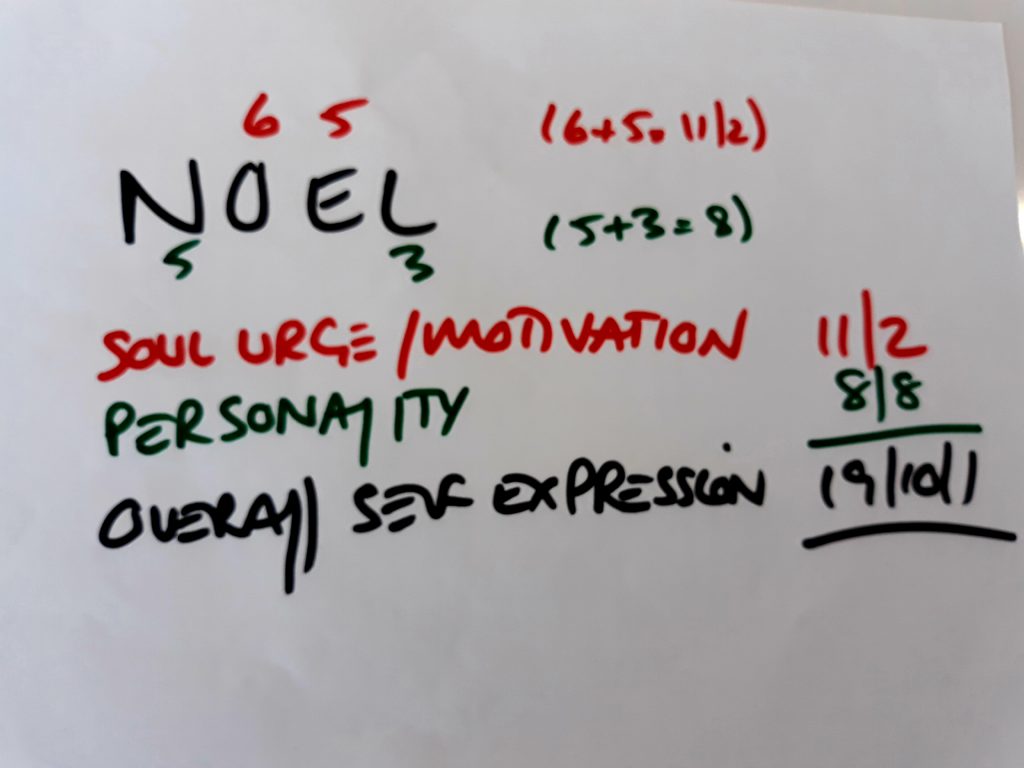 6 5 (6+5= 11/2)
NOEL
5 3 (5+3=8)
SOUL URGE/MOTIVATION 11/2
PERSONALITY 8/8
OVERALL SELF EXPRESSION 19/10/1